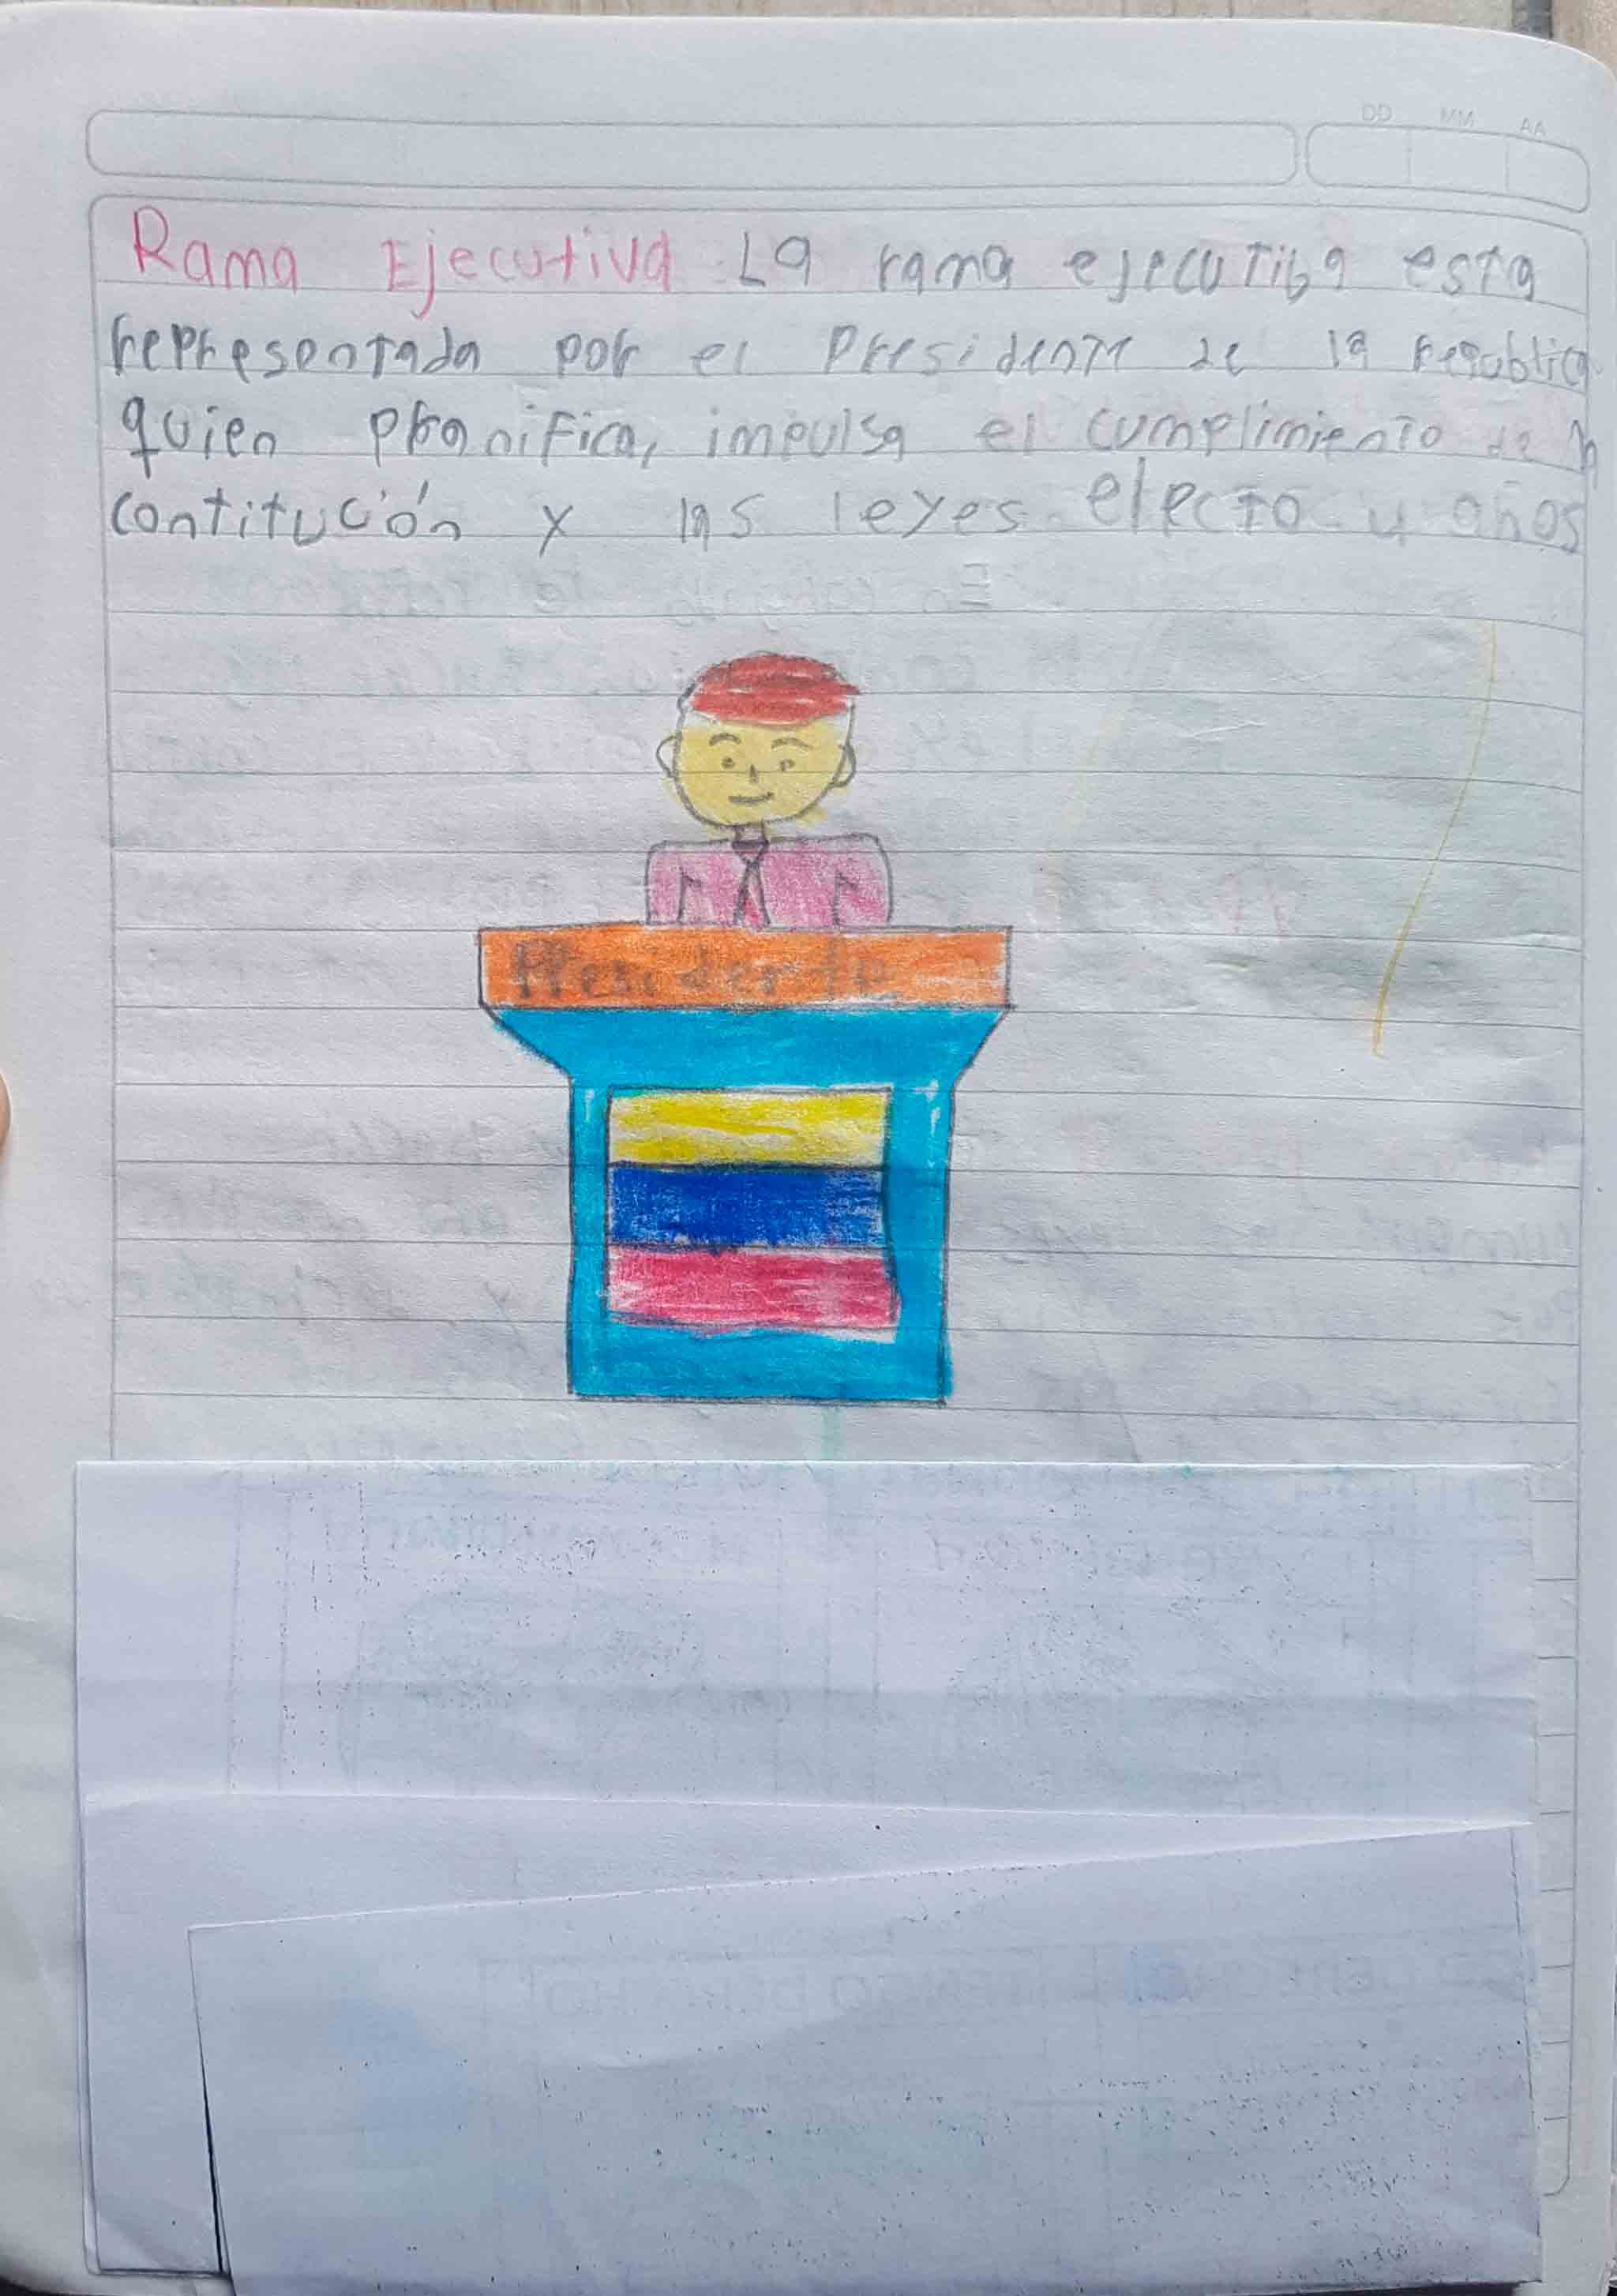 DD MM AA
Rama Ejecutiva La rama ejecutiba esta
representada por el Presidente de la Republica
quien planifica, impulsa el cumplimiento de la
contitución y las leyes electo 4 años
Presidente